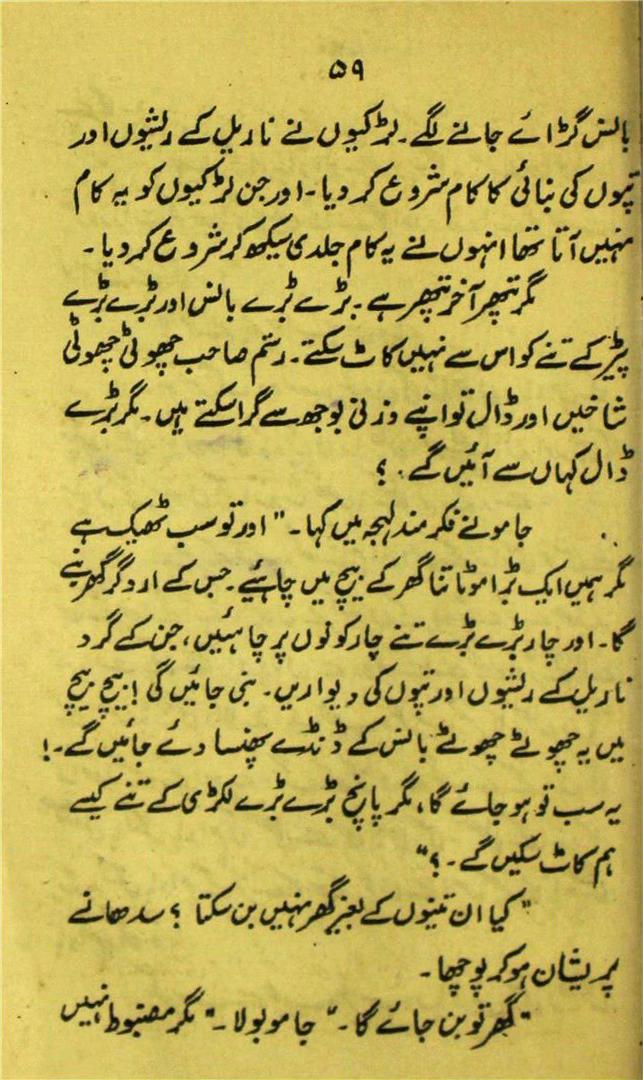 ۵۹
بانس گڑائے جانے لگے۔ لڑکیوں نے ناریل کے ریشوں اور
پتوں کی بنائی کا کام شروع کر دیا۔ اور جن لڑکیوں کو یہ کام
نہیں آتا تھا انہوں نے یہ کام جلدی سیکھ کر شروع کر دیا۔
مگر پتھر آخر پتھر ہے۔ بڑے بڑے بانس اور بڑے بڑے
پیڑ کے تنے کو اس سے نہیں کاٹ سکتے۔ رستم صاحب چھوٹی چھوٹی
شاخیں اور ڈال تو اپنے وزنی بوجھ سے گرا سکتے ہیں۔ مگر بڑے
ڈال کہاں سے آئیں گے۔ ؟
جامو نے فکر مند لہجہ میں کہا۔ "اور تو سب ٹھیک ہے
مگر ہمیں ایک بڑا موٹا تنا گھر کے بیچ میں چاہئیے۔ جس کے ارد گرد گھر بنے
گا۔ اور چار بڑے بڑے تنے چار کونوں پر چاہئیں، جن کے گرد
ناریل کے ریشوں اور پتوں کی دیواریں۔ بنی جائیں گی ! بیچ بیچ
میں یہ چھوٹے چھوٹے بانس کے ڈنڈے پھنسا دئے جائیں گے۔ !
یہ سب تو ہو جائے گا، مگر پانچ بڑے بڑے لکڑی کے تنے کیسے
ہم کاٹ سکیں گے۔ ؟"
"کیا ان تینوں کے بغیر گھر نہیں بن سکتا ؟ سدھا نے
پریشان ہو کر پوچھا۔
"گھر تو بن جائے گا۔" جامو بولا۔ "مگر مضبوط نہیں